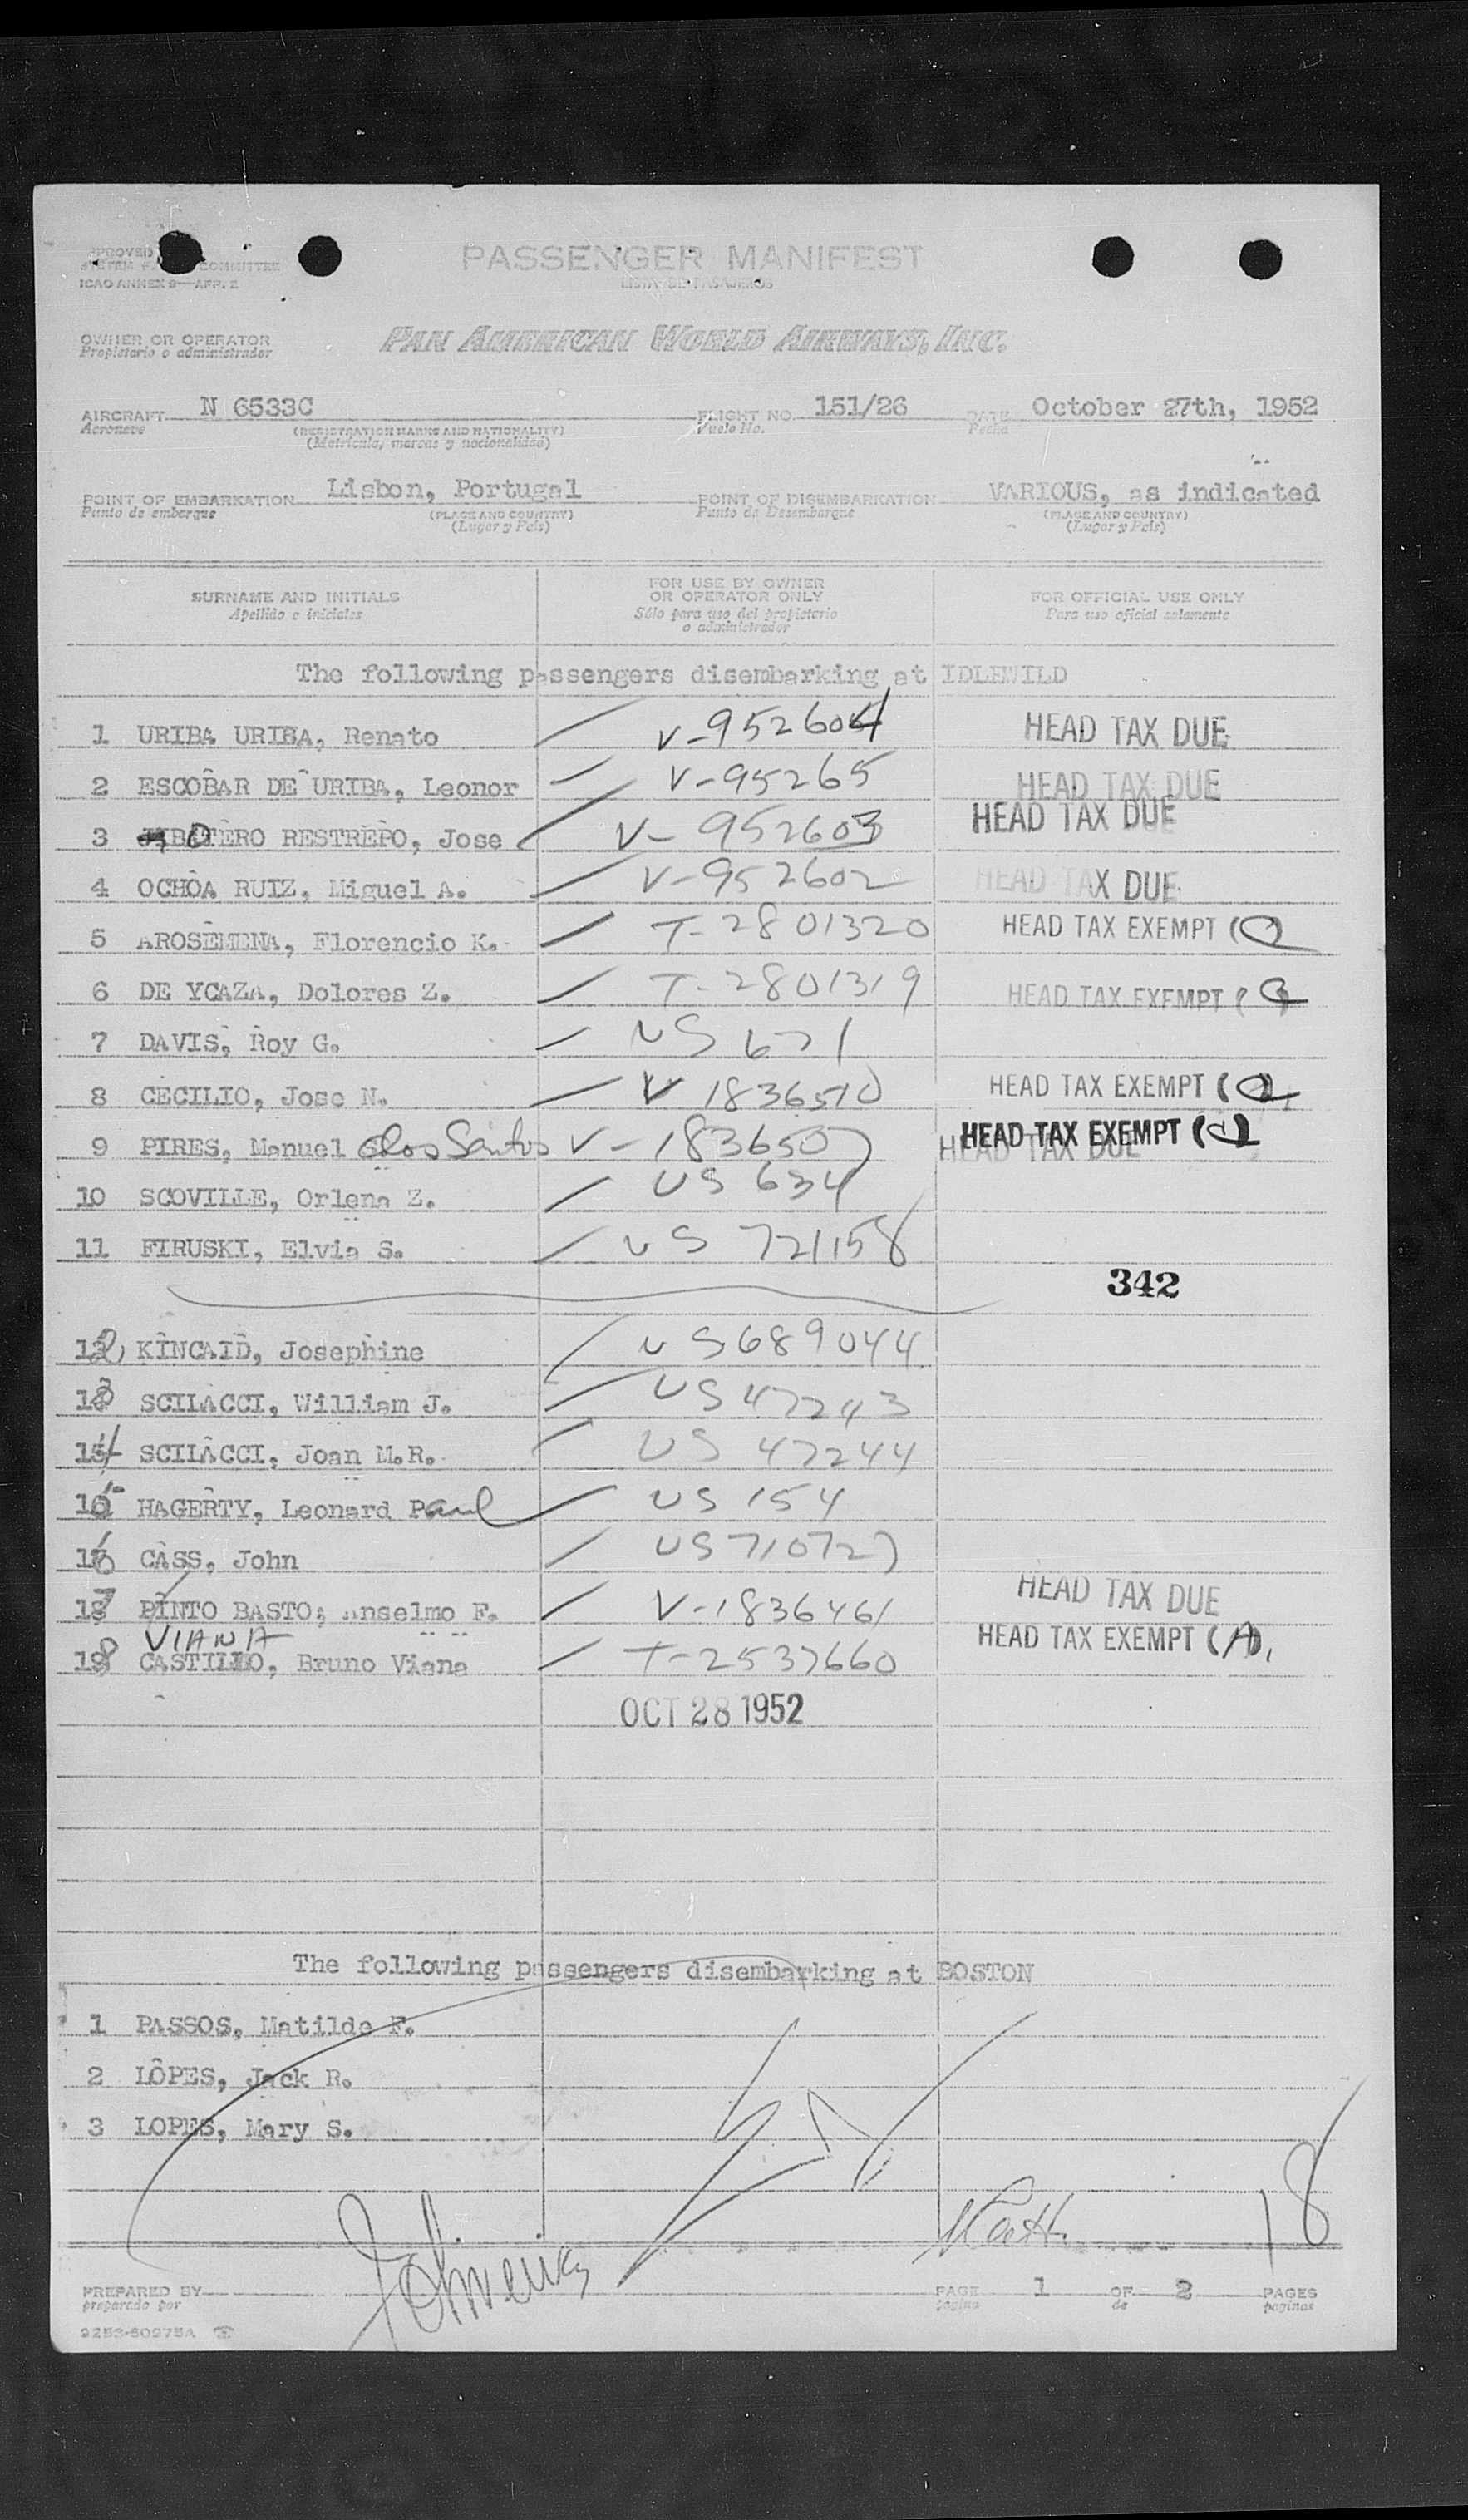 PASSENGER MANIFEST
LISTA DE PASAJEROS
ICAO ANNEX 9—APP. 2
OWNER OR OPERATOR
Propietario o administrador
PAN AMERICAN WORLD AIRWAYS, INC.
AIRCRAFT N 6533C FLIGHT NO. 151/26 DATE October 27th, 1952
Aeronave (REGISTRATION MARKS AND NATIONALITY) Vuelo No. Fecha
(Matricula, marcas y nacionalidad)
POINT OF EMBARKATION Lisbon, Portugal POINT OF DISEMBARKATION VARIOUS, as indicated
Punto de embarque (PLACE AND COUNTRY) Punto de Desembarque (PLACE AND COUNTRY)
(Lugar y País) (Lugar y País)
SURNAME AND INITIALS FOR USE BY OWNER OR OPERATOR ONLY FOR OFFICIAL USE ONLY
Apellido e iniciales Sólo para uso del propietario o administrador Para uso oficial solamente
The following passengers disembarking at IDLEWILD
1 URIBA URIBA, Renato V-952604 HEAD TAX DUE
2 ESCOBAR DE URIBA, Leonor V-95265 HEAD TAX DUE
3 BOTERO RESTREPO, Jose V-952603 HEAD TAX DUE
4 OCHOA RUIZ, Miguel A. V-952602 HEAD TAX DUE
5 AROSEMENA, Florencio K. T-2801320 HEAD TAX EXEMPT
6 DE YCAZA, Dolores Z. T-2801319 HEAD TAX EXEMPT
7 DAVIS, Roy G. US 671
8 CECILIO, Jose N. V 1836510 HEAD TAX EXEMPT
9 PIRES, Manuel dos Santos V-1836507 HEAD TAX EXEMPT HEAD TAX DUE
10 SCOVILLE, Orlena Z. US 634
11 FIRUSKI, Elvia S. US 721158
342
12 KINCAID, Josephine US 689044
13 SCILACCI, William J. US 47243
14 SCILACCI, Joan M.R. US 47244
15 HAGERTY, Leonard Paul US 154
16 CASS, John US 710727
17 PINTO BASTO; Anselmo F. V-1836461 HEAD TAX DUE
VIANA
18 CASTILHO, Bruno Viana T-2537660 HEAD TAX EXEMPT (A)
OCT 28 1952
The following passengers disembarking at BOSTON
1 PASSOS, Matilde F.
2 LOPES, Jack R.
3 LOPES, Mary S.
18
PREPARED BY PAGE 1 OF 2 PAGES
preparado por pagina de paginas